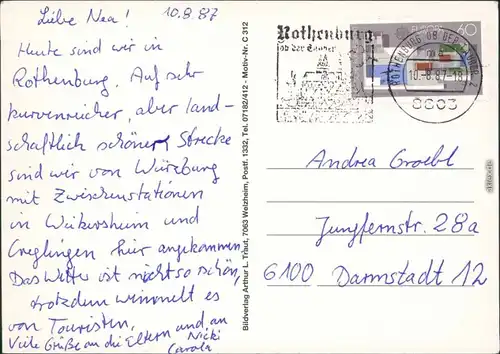 Liebe Nea! 10.8.87
Heute sind wir in
Rothenburg. Auf sehr
kurvenreicher, aber land-
schaftlich schöner Strecke
sind wir von Würzburg
mit Zwischenstationen
in Weikersheim und
Creglingen hier angekommen.
Das Wetter ist nicht so schön,
trotzdem wimmelt es
von Touristen.
Viele Grüße an die Eltern und an
Nicki
Carola
Bildverlag Arthur L. Traut, 7063 Welzheim, Postf. 1332, Tel. 07182/412 - Motiv-Nr. C 312
Rothenburg
ob der Tauber
ROTHENBURG OB DER TAUBER 2
10.-8.87-18
8803
60
Andrea Groebl
Jungfernstr. 28a
6100 Darmstadt 12